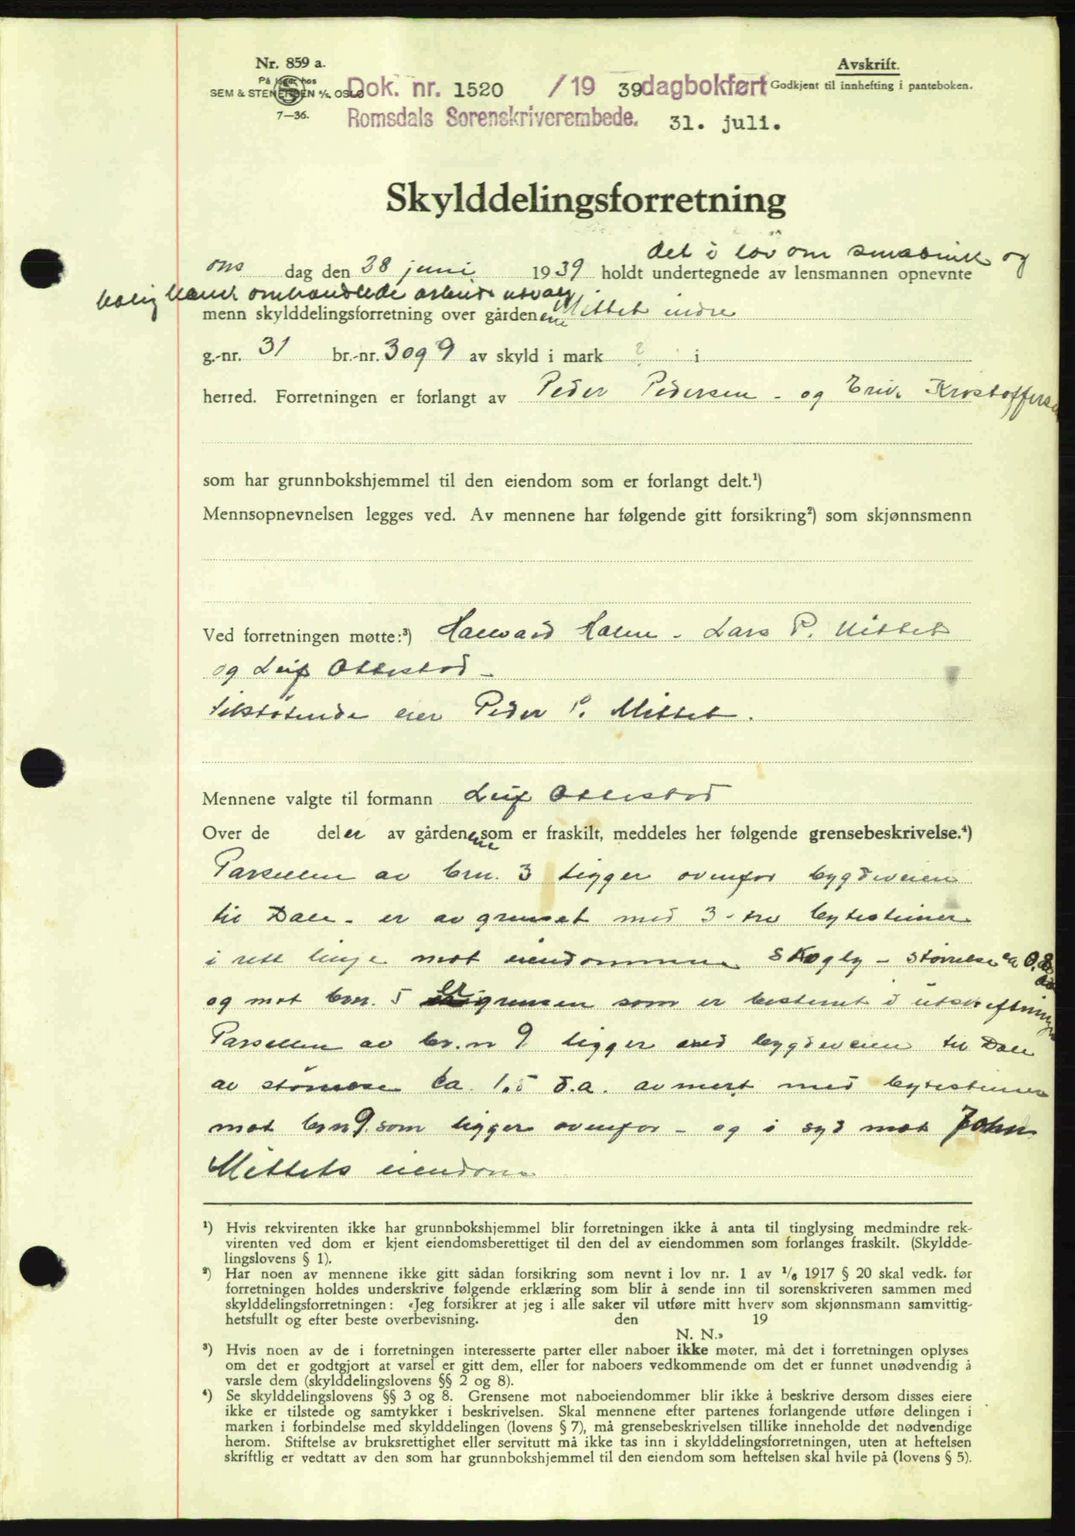 Nr. 859 a.
På lager hos
SEM & STENERSEN A/S, OSLO
7—36.
Avskrift.
Godkjent til innhefting i panteboken.
Dok. nr. 1520 /19 39 dagbokført
Romsdals Sorenskriverembede. 31. juli.
Skylddelingsforretning
det i lov om småbruk og
ons dag den 28 juni 1939 holdt undertegnede av lensmannen opnevnte
bolig omhandlede arbeidsutvalg
menn skylddelingsforretning over gårdenene Mittet indre
g.-nr. 31 br.-nr. 3 og 9 av skyld i mark i
herred. Forretningen er forlangt av Peder Pedersen - og Erik Kristoffersen
som har grunnbokshjemmel til den eiendom som er forlangt delt.¹)
Mennsopnevnelsen legges ved. Av mennene har følgende gitt forsikring²) som skjønnsmenn
Ved forretningen møtte:³) Hallvard Holm - Lars P. Mittet
og Leif Ottestad -
tilstøtende eier Peder P. Mittet.
Mennene valgte til formann Leif Ottestad
Over de deler av gårdenene som er fraskilt, meddeles her følgende grensebeskrivelse.⁴)
Parsellen av brn. 3 ligger ovenfor bygdeveien
til Dale - er avgrenset med 3 - tre bytesteiner
i rett linje mot eiendommen Skogly - størrelse ca 0.8
og mot brn. 5 er grensen som er bestemt i utskiftning
Parsellen av br.n 9 ligger ved bygdeveien til Dale
av størrelse ca. 1.5 d.a. avmert med bytesteiner
mot brn 9. som ligger ovenfor - og i syd mot John
Mittets eiendom
¹) Hvis rekvirenten ikke har grunnbokshjemmel blir forretningen ikke å anta til tinglysing medmindre rek-
virenten ved dom er kjent eiendomsberettiget til den del av eiendommen som forlanges fraskilt. (Skyldde-
lingslovens § 1).
²) Har noen av mennene ikke gitt sådan forsikring som nevnt i lov nr. 1 av 1/6 1917 § 20 skal vedk. før
forretningen holdes underskrive følgende erklæring som blir å sende inn til sorenskriveren sammen med
skylddelingsforretningen: «Jeg forsikrer at jeg i alle saker vil utføre mitt hverv som skjønnsmann samvittig-
hetsfullt og efter beste overbevisning. den 19
N. N.»
³) Hvis noen av de i forretningen interesserte parter eller naboer ikke møter, må det i forretningen oplyses
om det er godtgjort at varsel er gitt dem, eller for naboers vedkommende om det er funnet unødvendig å
varsle dem (skylddelingslovens §§ 2 og 8).
⁴) Se skylddelingslovens §§ 3 og 8. Grensene mot naboeiendommer blir ikke å beskrive dersom disses eiere
ikke er tilstede og samtykker i beskrivelsen. Skal mennene efter partenes forlangende utføre delingen i
marken i forbindelse med skylddelingen (lovens § 7), må grensebeskrivelsen tillike inneholde det nødvendige
herom. Stiftelse av bruksrettighet eller servitutt må ikke tas inn i skylddelingsforretningen, uten at heftelsen
skriftlig er vedtatt av den som har grunnbokshjemmel til den eiendom som heftelsen skal hvile på (lovens § 5).